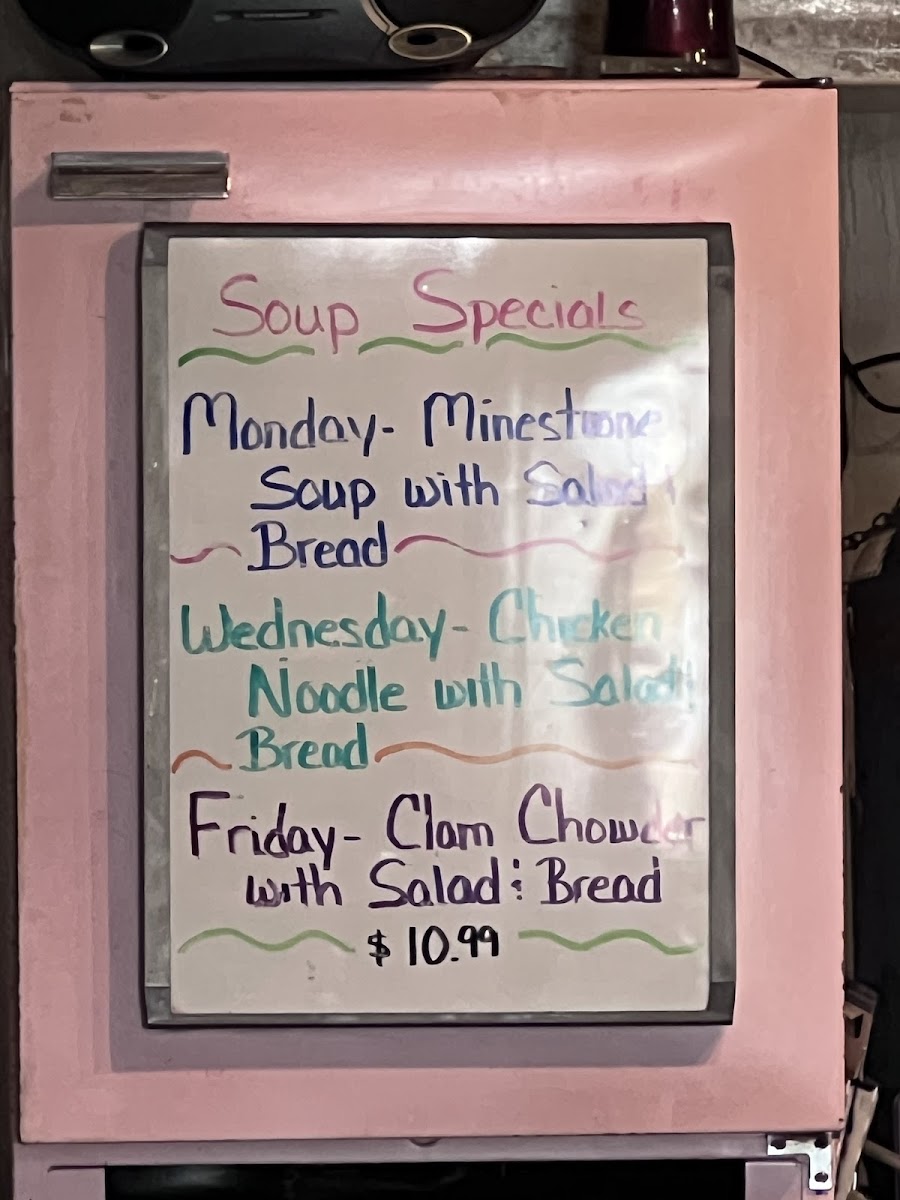 Soup Specials
Monday- Minestrone
Soup with Salad &
Bread
Wednesday- Chicken
Noodle with Salad &
Bread
Friday- Clam Chowder
with Salad & Bread
$ 10.99